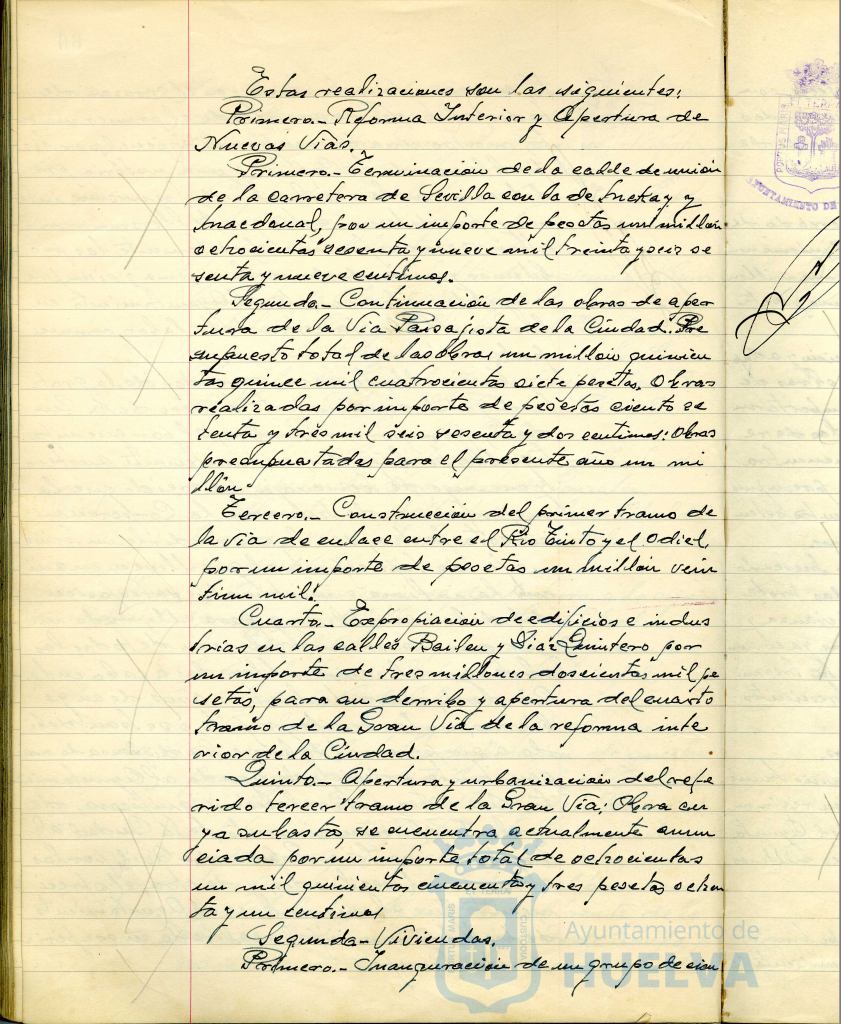 Estas realizaciones son las siguientes:
Primero.- Reforma Interior y Apertura de
Nuevas Vías.
Primero.- Terminación de la calle de unión
de la carretera de Sevilla con la de
por un importe de pesetas un millón
ochocientas sesenta y nueve mil treinta y seis se
senta y nueve centimos.
Segunda.- Continuación de las obras de aper
tura de la Vía Paisajista de la Ciudad. Pre
supuesto total de las obras un millón quinien
tas quince mil cuatrocientas siete pesetas. Obras
realizadas por importe de pesetas ciento se
tenta y tres mil seis sesenta y dos centimos: Obras
presupuestadas para el presente año un mi
llón.
Tercero.- Construcción del primer tramo de
la vía de enlace entre el Río Tinto y el Odiel,
por un importe de pesetas un millón vein
tiun mil.
Cuarta.- Expropiación de edificios e indus
trias en las calles Bailen y Diaz Quintero por
un importe de tres millones doscientas mil pe
setas, para su derribo y apertura del cuarto
tramo de la Gran Vía de la reforma inte
rior de la Ciudad.
Quinto.- Apertura y urbanización del refe
rido tercer tramo de la Gran Vía; Obra cu
ya subasta, se encuentra actualmente anun
ciada por un importe total de ochocientas
un mil quinientas cincuenta y tres pesetas ochen
ta y un centimos
Segunda.- Viviendas.
Primero.- Inauguración de un grupo de cien
AYUNTAMIENTO DE
Ayuntamiento de
HUELVA